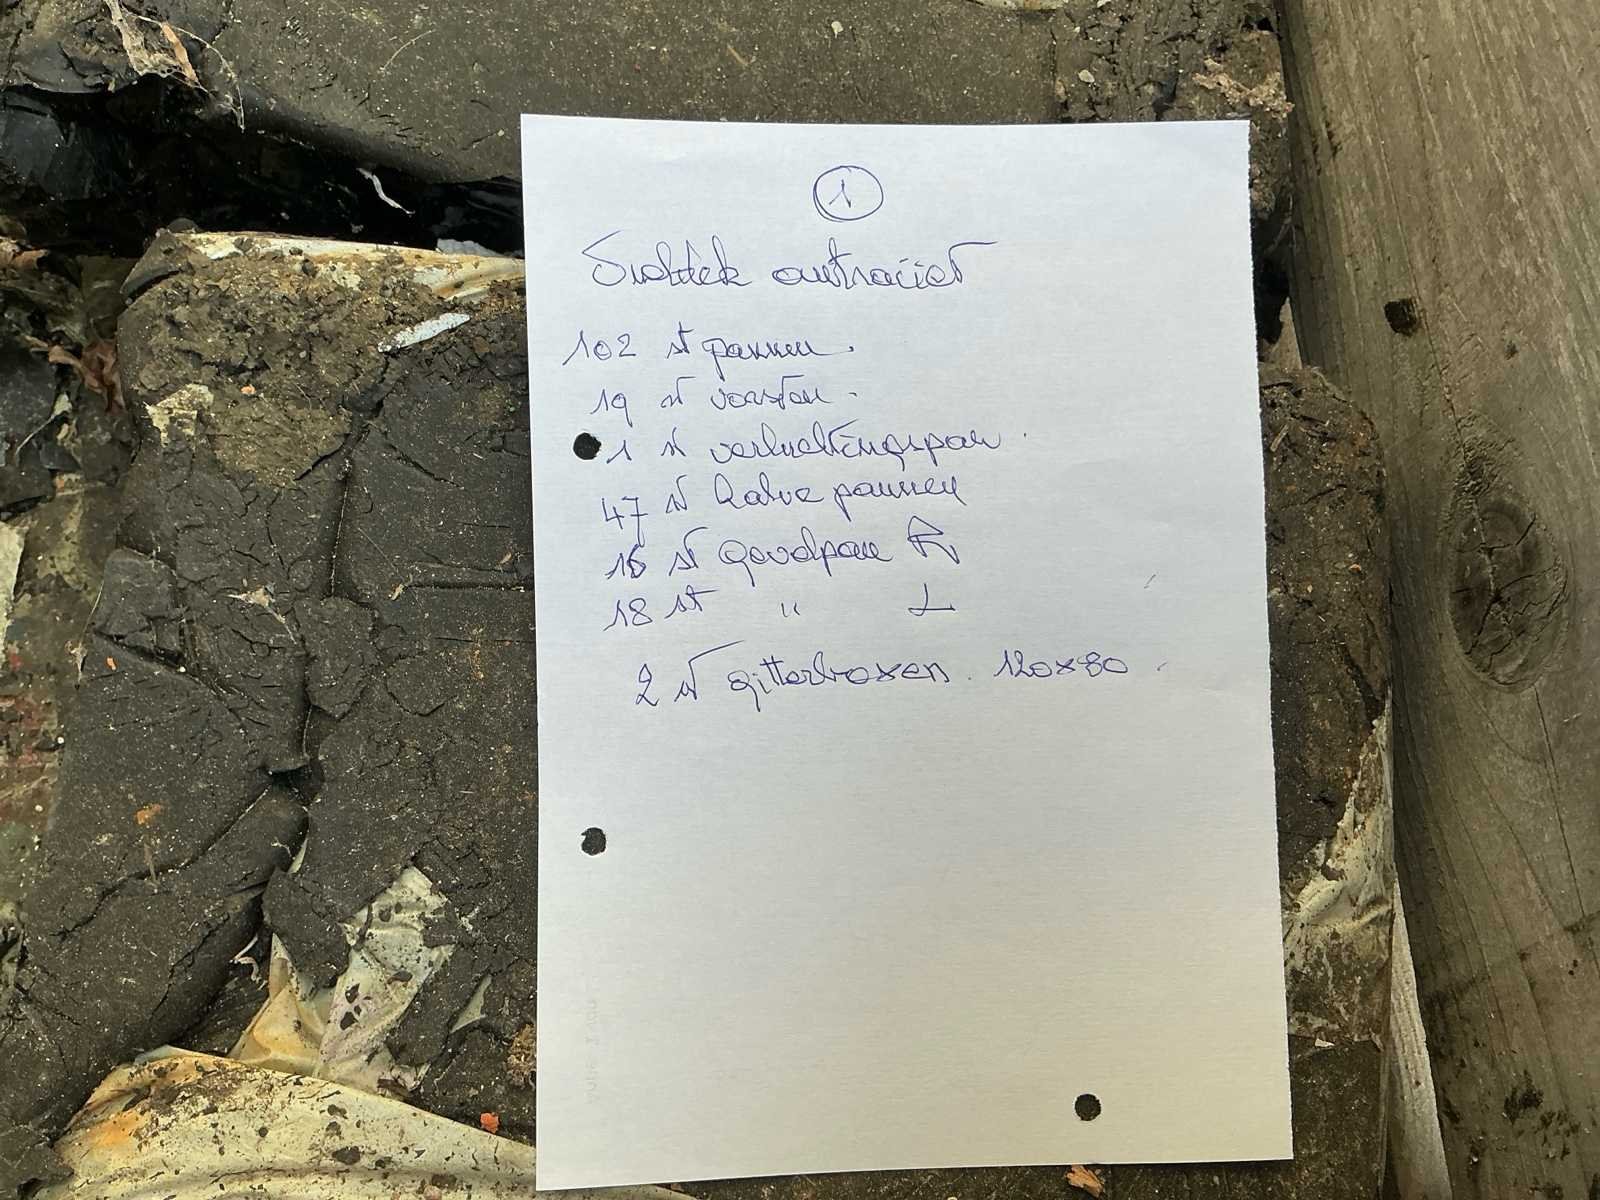 1
antraciet
102 st pannen.
19 st vorsten.
1 st verluchtingspan.
47 st halve pannen
16 st Gevelpan R
18 st " L
2 st gitterboxen. 120x80